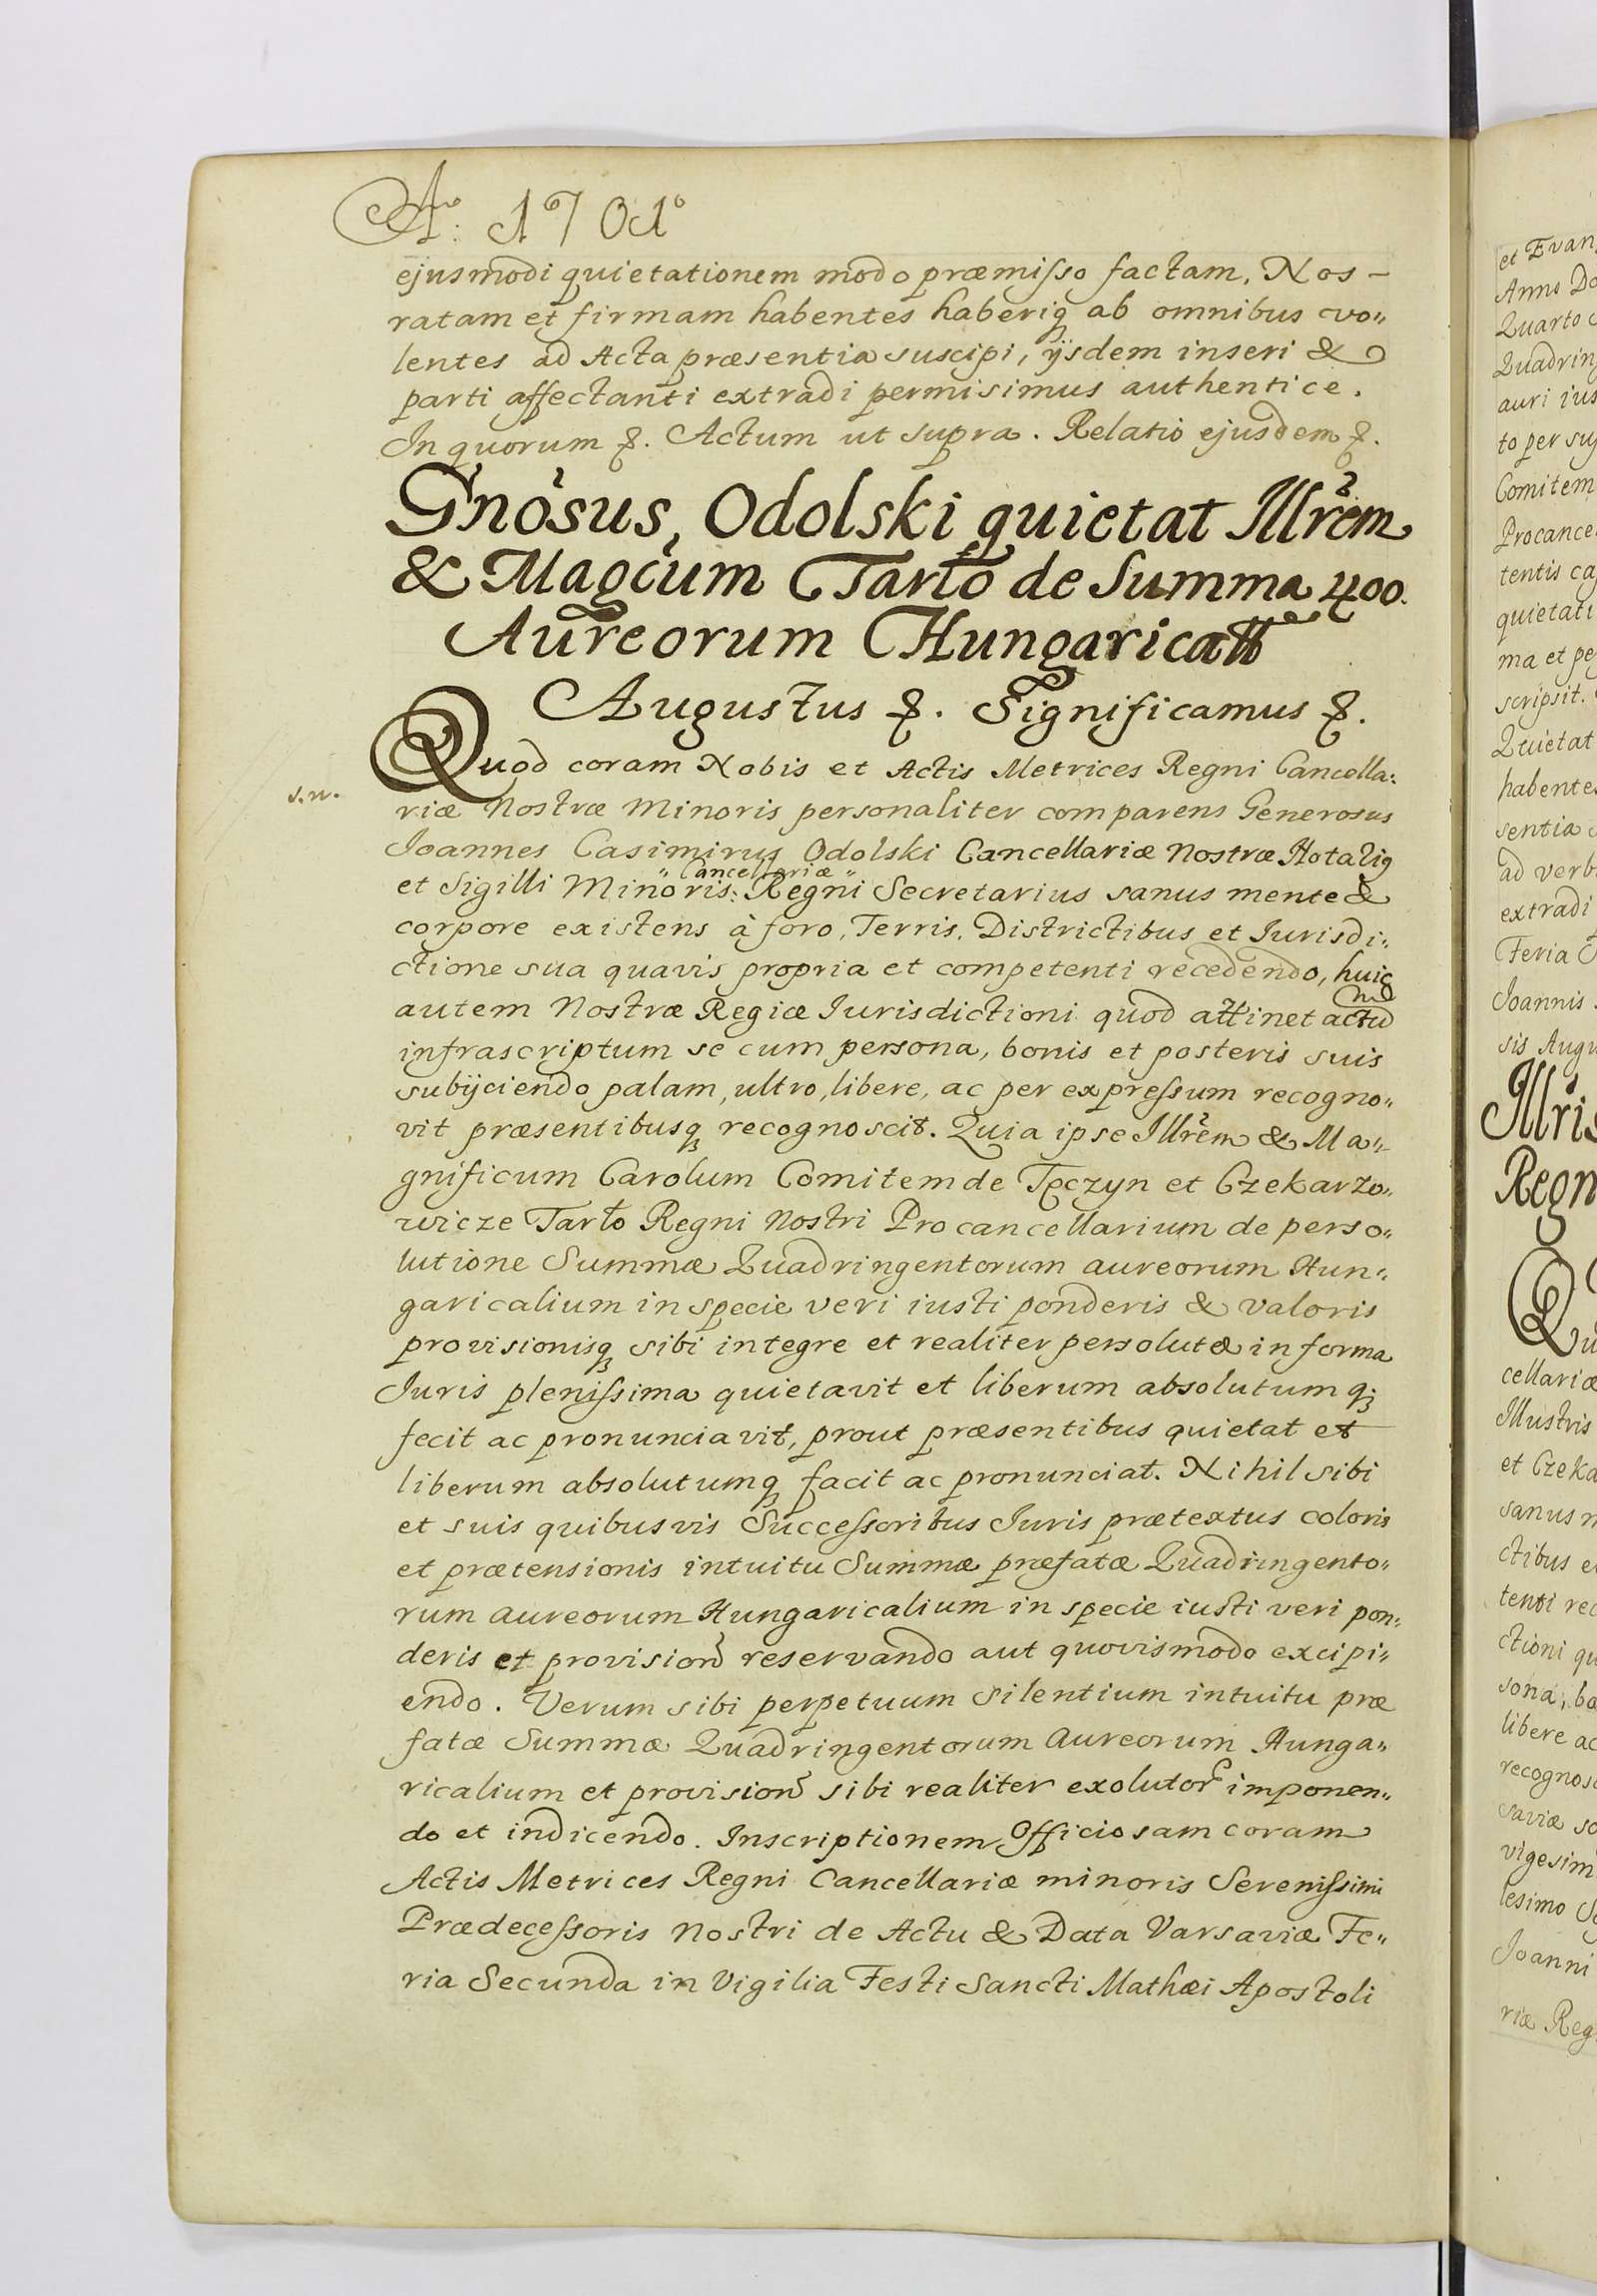 Aº: 1701º
ejusmodi quietationem modo præmisso factam. Nos –
ratam et firmam habentes haberiq; ab omnibus vo„
lentes ad Acta præsentia suscipi, ijsdem inseri &
parti affectanti extradi permisimus authentice.
In quorum &. Actum ut supra. Relatio ejusdem &.
Gnosus, Odolski quietat Illrem
& Magcum Tarło de Summa 400.
Aureorum Hungaricall
Augustus &. Significamus &.
Quod coram Nobis et Actis Metrices Regni Cancella:
s.n.
riæ Nostræ Minoris personaliter comparens Generosus
Joannes Casimirus Odolski Cancellariæ Nostræ
„Cancellariæ„
et Sigilli Minoris: Regni Secretarius sanus mente &
corpore existens à foro, Terris, Districtibus et Jurisdi„
ctione sua quavis propria et competenti recedendo, huic
autem Nostræ Regiæ Jurisdictioni quod attinet actū
infrascriptum se cum persona, bonis et posteris suis
subijciendo palam, ultro, libere, ac per expressum recogno„
vit præsentibusq; recognoscit. Quia ipse Illrem & Ma„
gnificum Carolum Comitem de Tęczyn et Czekarzo„
wicze Tarło Regni Nostri Procancellarium de perso„
lutione Summæ Quadringentorum aureorum Hun„
garicalium in specie veri iusti ponderis & valoris
provisionisq; sibi integre et realiter persolutæ in forma
Juris plenissima quietavit et liberum absolutum q;
fecit ac pronunciavit, prout præsentibus quietat et
liberum absolutumq; facit ac pronunciat. Nihil sibi
et suis quibusvis Successoribus Juris prætextus coloris
et prætensionis intuitu Summæ præfatæ Quadringento„
rum aureorum Hungaricalium in specie iusti veri pon„
deris et provision reservando aut quovismodo excipi„
endo. Verum sibi perpetuum silentium intuitu præ
fatæ Summæ Quadringentorum Aureorum Hunga„
ricalium et provision sibi realiter exolutor imponen„
do et indicendo. Inscriptionem Officiosam coram
Actis Metrices Regni Cancellariæ minoris Serenissimi
Prædecessoris Nostri de Actu & Data Varsaviæ Fe„
ria Secunda in Vigilia Festi Sancti Mathæi Apostoli
et Evan
Anno Do
Quarto
Quadrin
auri ius
to per su
Comitem
Procance
tentis ca
quietati
ma et pe
scripsit.
Quietat
habente
sentia
ad verb
extradi
Feria
Joannis
sis Augu
Illris
Regn
Qu
cellariæ
Illustris
et Czeka
sanus m
ctibus e
tenti rec
ctioni qu
sona, bo
libere ac
recognos
saviæ
vigesim
lesimo
Joanni
riæ Reg